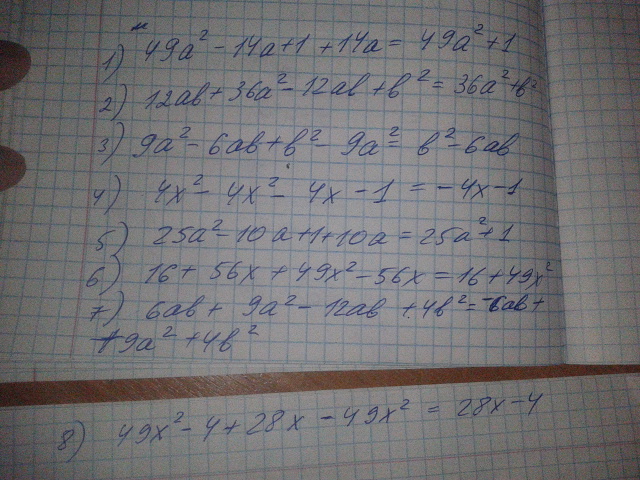 1) 49a² - 14a + 1 + 14a = 49a² + 1
2) 12ab + 36a² - 12ab + b² = 36a² + b²
3) 9a² - 6ab + b² - 9a² = b² - 6ab
4) 4x² - 4x² - 4x - 1 = -4x - 1
5) 25a² - 10a + 1 + 10a = 25a² + 1
6) 16 + 56x + 49x² - 56x = 16 + 49x²
7) 6ab + 9a² - 12ab + 4b² = -6ab +
+ 9a² + 4b²
8) 49x² - 4 + 28x - 49x² = 28x - 4